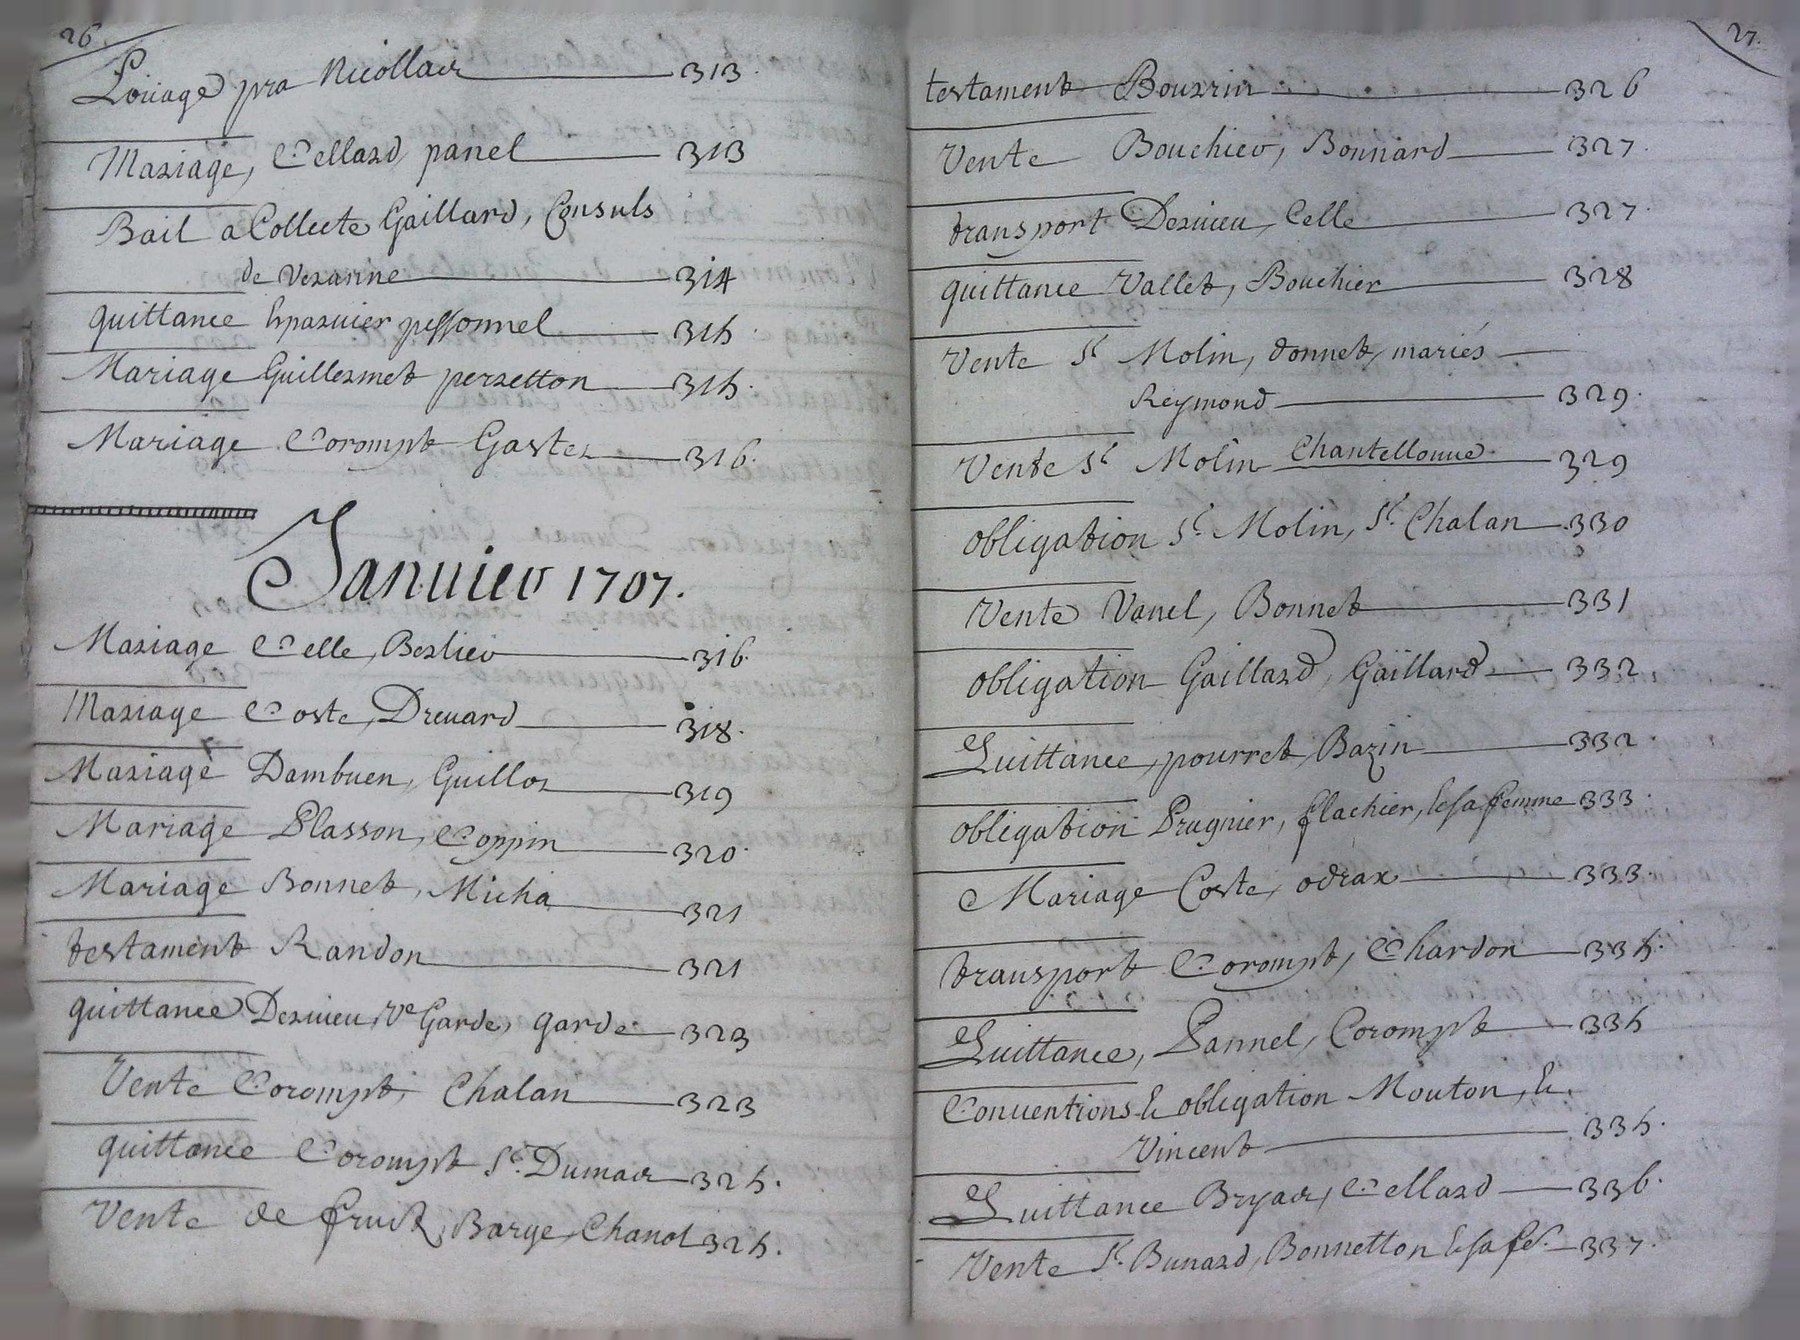 26.
Loüage pra Nicollas 313.
Mariage, Cellard, panel 313
Bail a Collecte Gaillard, Consuls
de Veranne 314
quittance Eparuier pessonnel 315.
Mariage Guillermet perretton 315.
Mariage Corompt Gaster 316.
Januier 1707.
Mariage Celle, Berlier 316.
Mariage Coste, Dreuard 318.
Mariage Dambuen, Guillor 319
Mariage Plasson, Coppin 320.
Mariage Bonnet, Micha 321
testament Randon 321
quittance Deruieu, Ve Garde, garde 323
Vente Corompt, Chalan 323
quittance Corompt Sr. Dumas 325.
Vente de fruit, Barge, Chanol 325.
27.
testament Bourrin 326
Vente Bouchier, Bonnard 327.
transport Deruieu, Celle 327.
quittance Vallet, Bouchier 328
Vente Sr Molin, donnet, mariés
Reymond 329.
Vente Sr Molin Chantellouue 329
obligation Sr. Molin, Sr. Chalan 330
Vente Vanel, Bonnet 331
obligation Gaillard, Gaillard 332.
Quittance, pourret, Bazin 332.
obligation Prugnier, flachier, & sa femme 333.
Mariage Coste, odrax 333.
transport Corompt, Chardon 335.
Quittance, Pannel, Corompt 335
Conuentions & obligation Mouton, &
Vincent 335.
Quittance Bryas, Cellard 336.
Vente Sr. Bunard, Bonnetton & sa fe. 337.